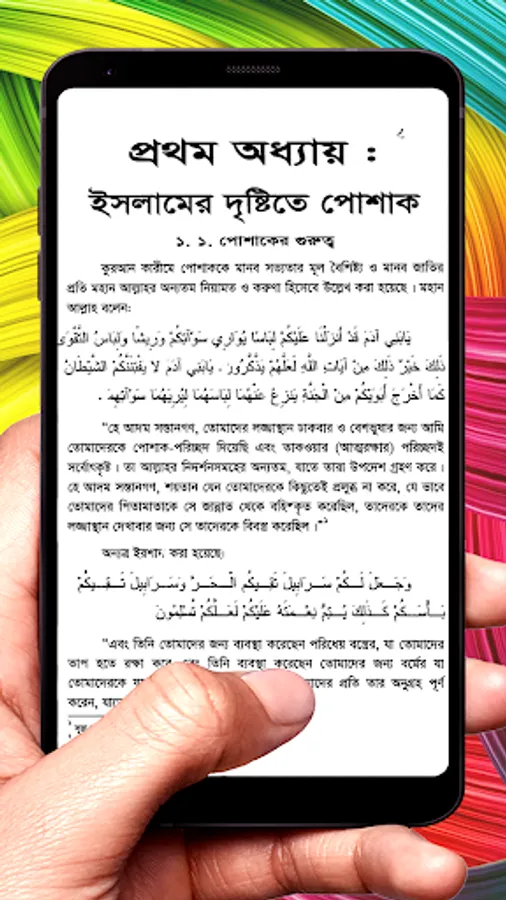 প্রথম অধ্যায় :
ইসলামের দৃষ্টিতে পোশাক
১. ১. পোশাকের গুরুত্ব
কুরআন কারীমে পোশাককে মানব সভ্যতার মূল বৈশিষ্ট্য ও মানব জাতির
প্রতি মহান আল্লাহর অন্যতম নিয়ামত ও করুণা হিসেবে উল্লেখ করা হয়েছে । মহান
আল্লাহ বলেন:
يَابَنِي آدَمَ قَدْ أَنزَلْنَا عَلَيْكُمْ لِبَاسًا يُوَارِي سَوْآتِكُمْ وَرِيشًا وَلِبَاسُ التَّقْوَى
ذَلِكَ خَيْرٌ ذَلِكَ مِنْ آيَاتِ اللَّهِ لَعَلَّهُمْ يَذَّكَّرُونَ . يَابَنِي آدَمَ لا يَفْتِنَنَّكُمْ الشَّيْطَانُ
كَمَا أَخْرَجَ أَبَوَيْكُمْ مِنْ الْجَنَّةِ يَنزِعُ عَنْهُمَا لِبَاسَهُمَا لِيُرِيَهُمَا سَوْآتِهِمَا .
"হে আদম সন্তানগণ, তোমাদের লজ্জাস্থান ঢাকবার ও বেশভূষার জন্য আমি
তোমাদেরকে পোশাক-পরিচ্ছদ দিয়েছি এবং তাকওয়ার (আত্মরক্ষার) পরিচ্ছদই
সর্বোৎকৃষ্ট । তা আল্লাহর নিদর্শনসমহের অন্যতম, যাতে তারা উপদেশ গ্রহণ করে ।
হে আদম সন্তানগণ, শয়তান যেন তোমাদেরকে কিছুতেই প্রলুব্ধ না করে, যে ভাবে
তোমাদের পিতামাতাকে সে জান্নাত থেকে বহিষ্কৃত করেছিল, তাদেরকে তাদের
লজ্জাস্থান দেখাবার জন্য সে তাদেরকে বিবস্ত্র করেছিল ।"১
অন্যত্র ইরশাদ করা হয়েছে:
وَجَعَلَ لَكُمْ سَرَابِيلَ تَقِيكُمُ الْحَرَّ وَسَرَابِيلَ تَقِيكُمْ
بَأْسَكُمْ كَذَلِكَ يُتِمُّ نِعْمَتَهُ عَلَيْكُمْ لَعَلَّكُمْ تُسْلِمُونَ
"এবং তিনি তোমাদের জন্য ব্যবস্থা করেছেন পরিধেয় বস্ত্রের, যা তোমাদের
তাপ হতে রক্ষা করে এবং তিনি ব্যবস্থা করেছেন তোমাদের জন্য বর্মের যা
তোমাদেরকে প্রতি তার অনুগ্রহ পূর্ণ
করেন,